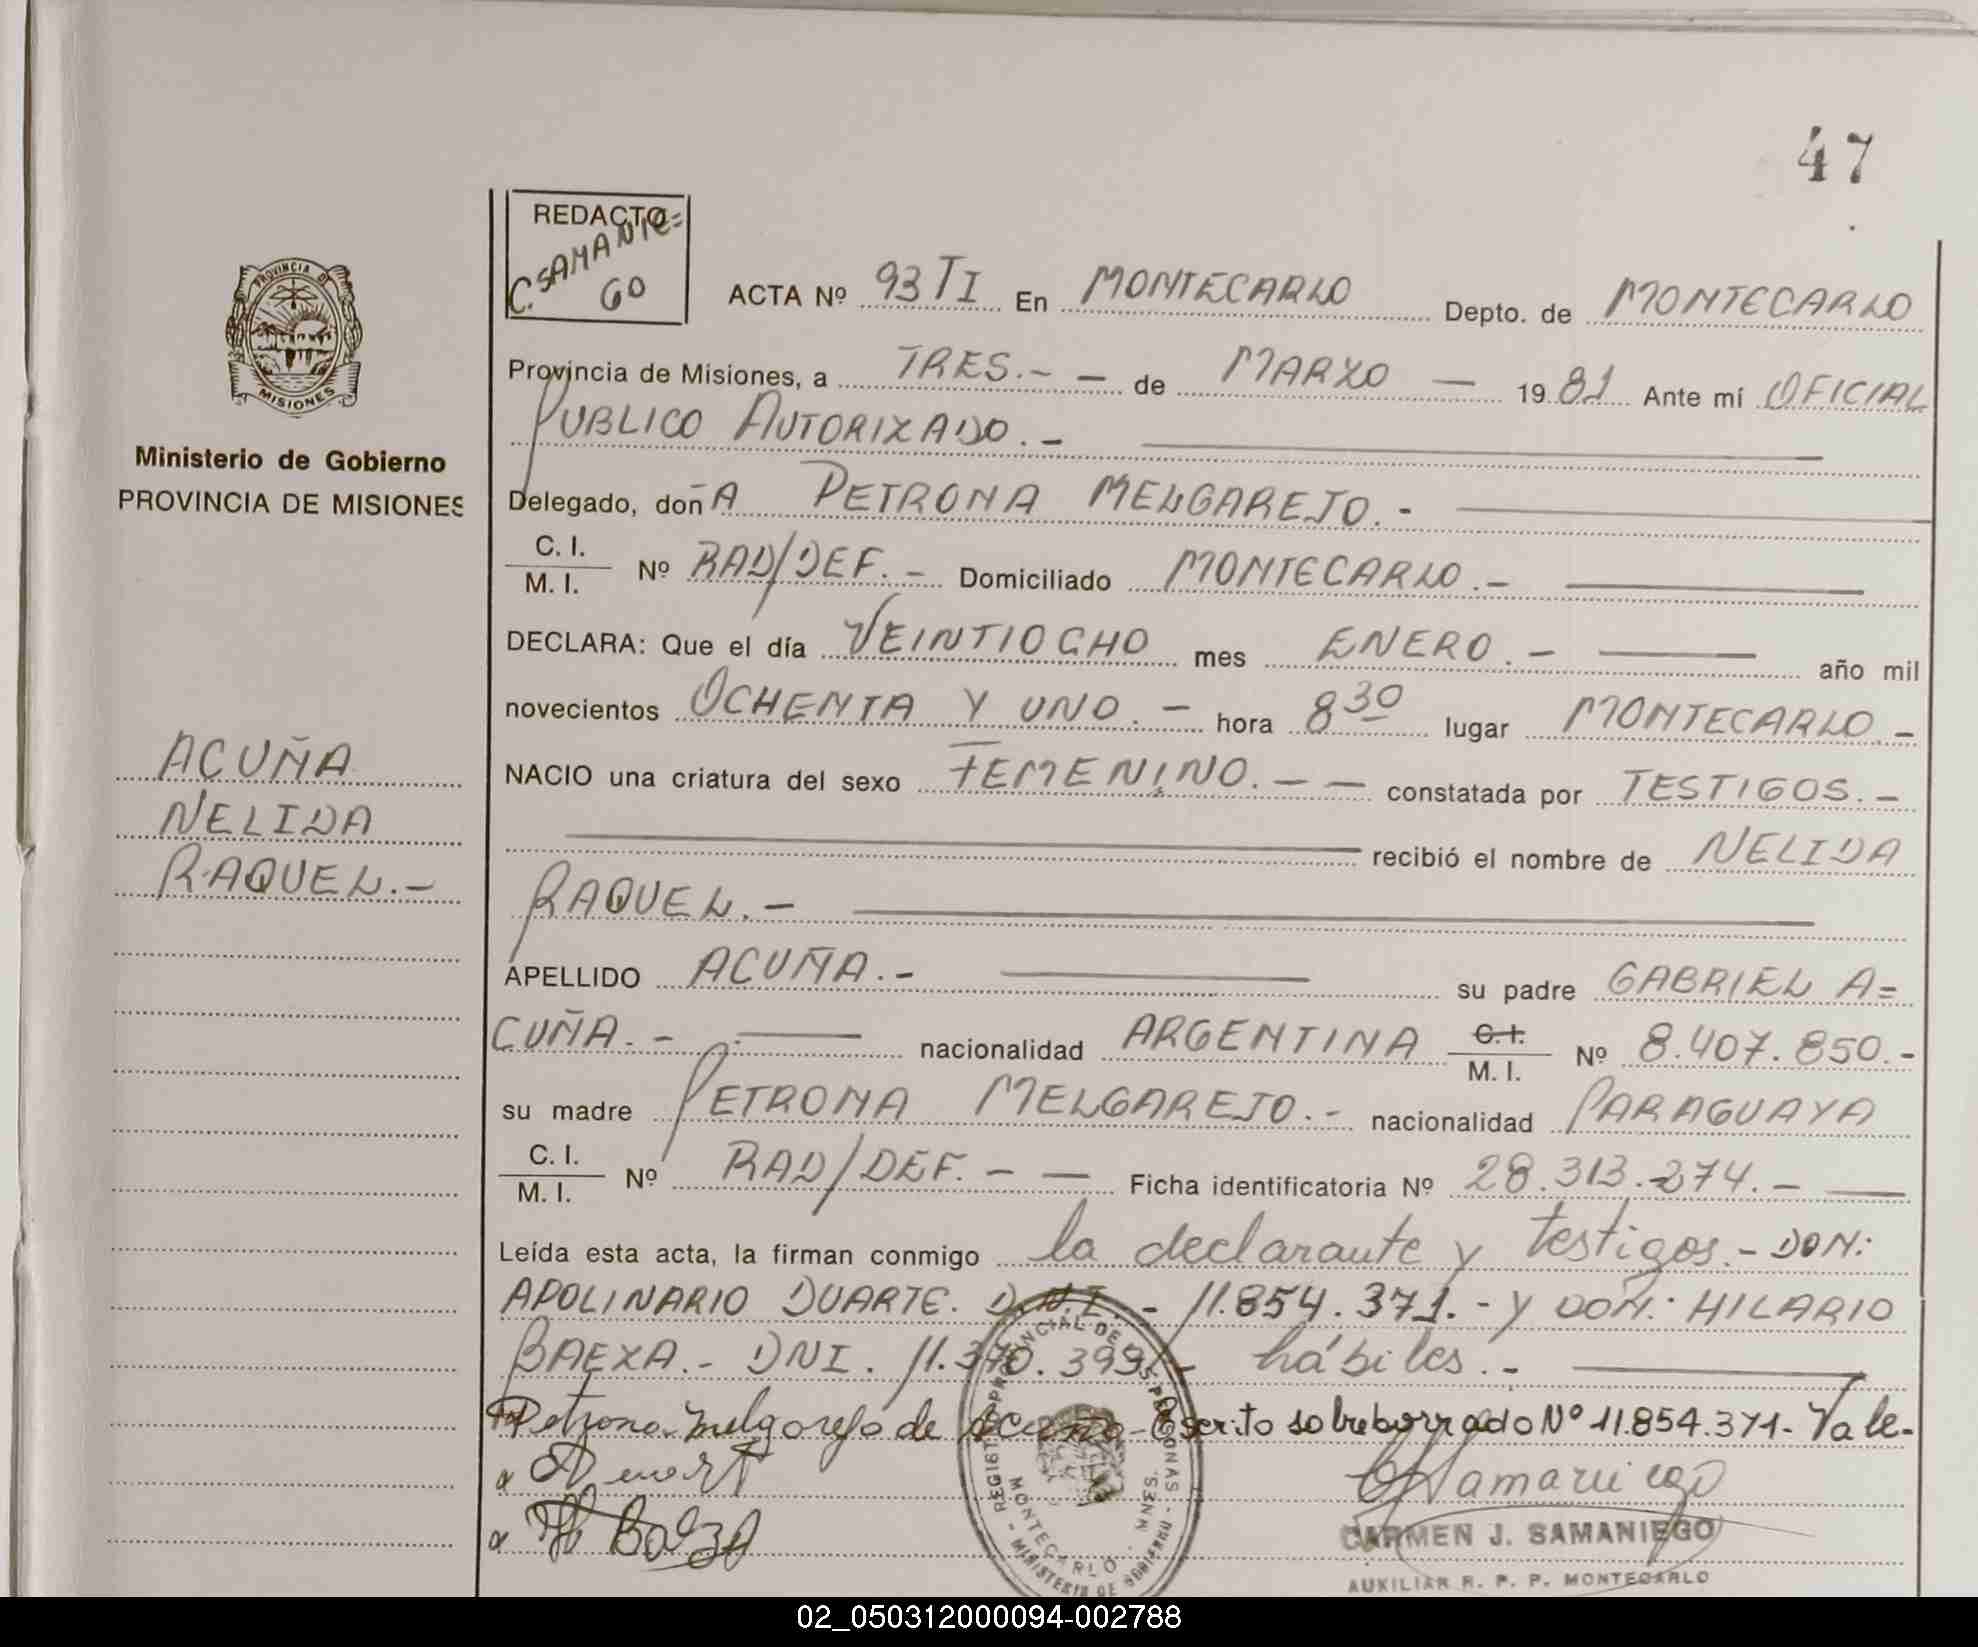 47
REDACTO
C. SAMANIE=
GO
ACTA Nº 93 TI En MONTECARLO Depto. de MONTECARLO
Provincia de Misiones, a TRES.- — de MARZO — 1981 Ante mí OFICIAL
PUBLICO AUTORIZADO.-
Delegado, doñA PETRONA MELGAREJO.-
C. I.
M. I. Nº RAD/DEF.- Domiciliado MONTECARLO.-
DECLARA: Que el día VEINTIOCHO mes ENERO.- año mil
novecientos OCHENTA Y UNO.- hora 8 30 lugar MONTECARLO.-
NACIO una criatura del sexo FEMENINO.- — constatada por TESTIGOS.-
recibió el nombre de NELIDA
RAQUEL.-
APELLIDO ACUÑA.- su padre GABRIEL A=
CUÑA.- nacionalidad ARGENTINA C.I.
M. I. Nº 8.407.850.-
su madre PETRONA MELGAREJO.- nacionalidad PARAGUAYA
C. I.
M. I. Nº RAD/DEF.- — Ficha identificatoria Nº 28.313.274.-
Leída esta acta, la firman conmigo la declarante y testigos.- DON:
APOLINARIO DUARTE. D.N.I.- 11.854.371.- Y DON: HILARIO
BAEZA.- DNI. 11.370.399.- hábiles.-
Petrona Melgarejo de Acuña- Escrito sobreborrado Nº 11.854.371- Vale-
CARMEN J. SAMANIEGO
AUXILIAR R. P. P. MONTECARLO
PROVINCIA DE
MISIONES
Ministerio de Gobierno
PROVINCIA DE MISIONES
ACUÑA
NELIDA
RAQUEL.-
REGISTRO PROVINCIAL DE LAS PERSONAS
MONTECARLO - MNES.
MINISTERIO DE GOBIERNO
02_050312000094-002788